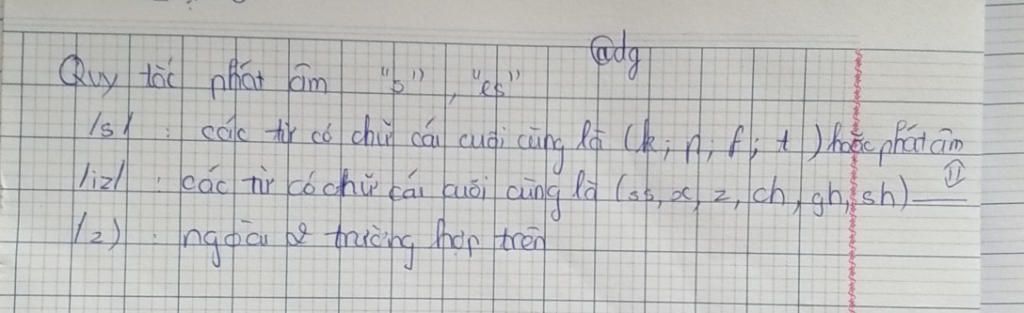 @dg
Quy tắc phát âm "s", "es"
/s/ : các từ có chữ cái cuối cùng là (k; p; f; t) hoặc phát âm
/iz/ : các từ có chữ cái cuối cùng là (ss, x, z, ch, gh, sh) —"—
/z/ : ngoài 2 trường hợp trên